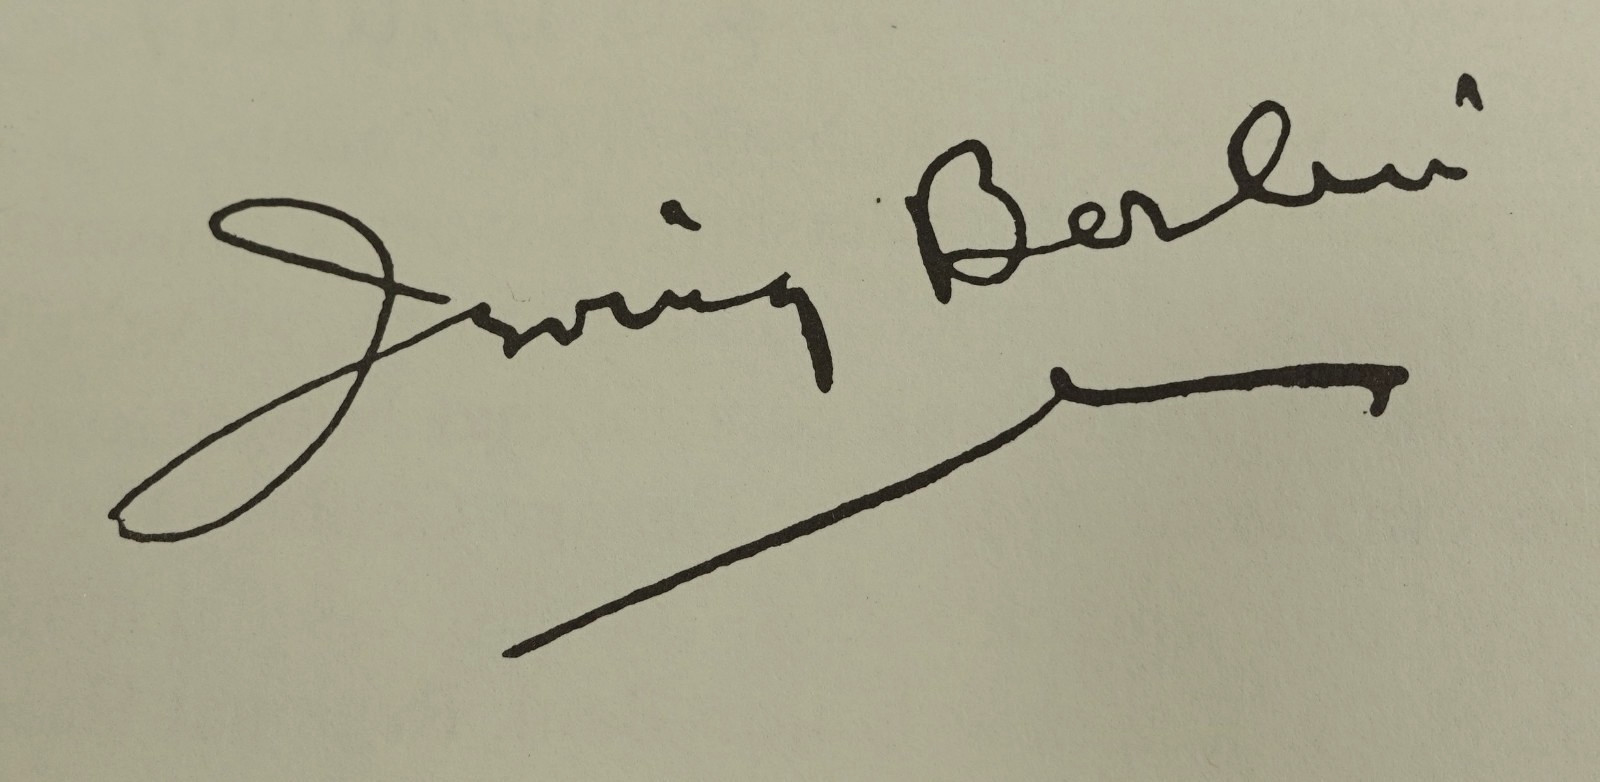 Irving Berlin